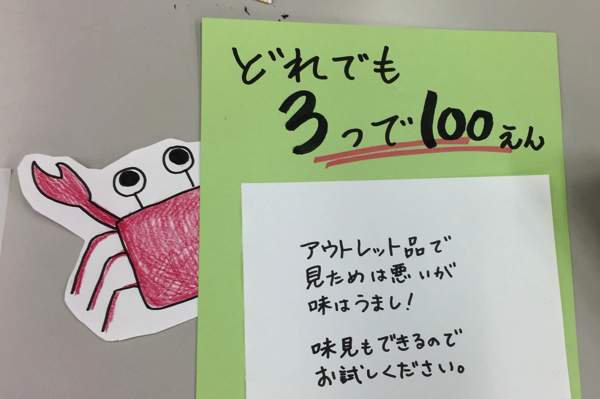 どれでも
3つで100えん
アウトレット品で
見ためは悪いが
味はうまし!
味見もできるので
お試しください。